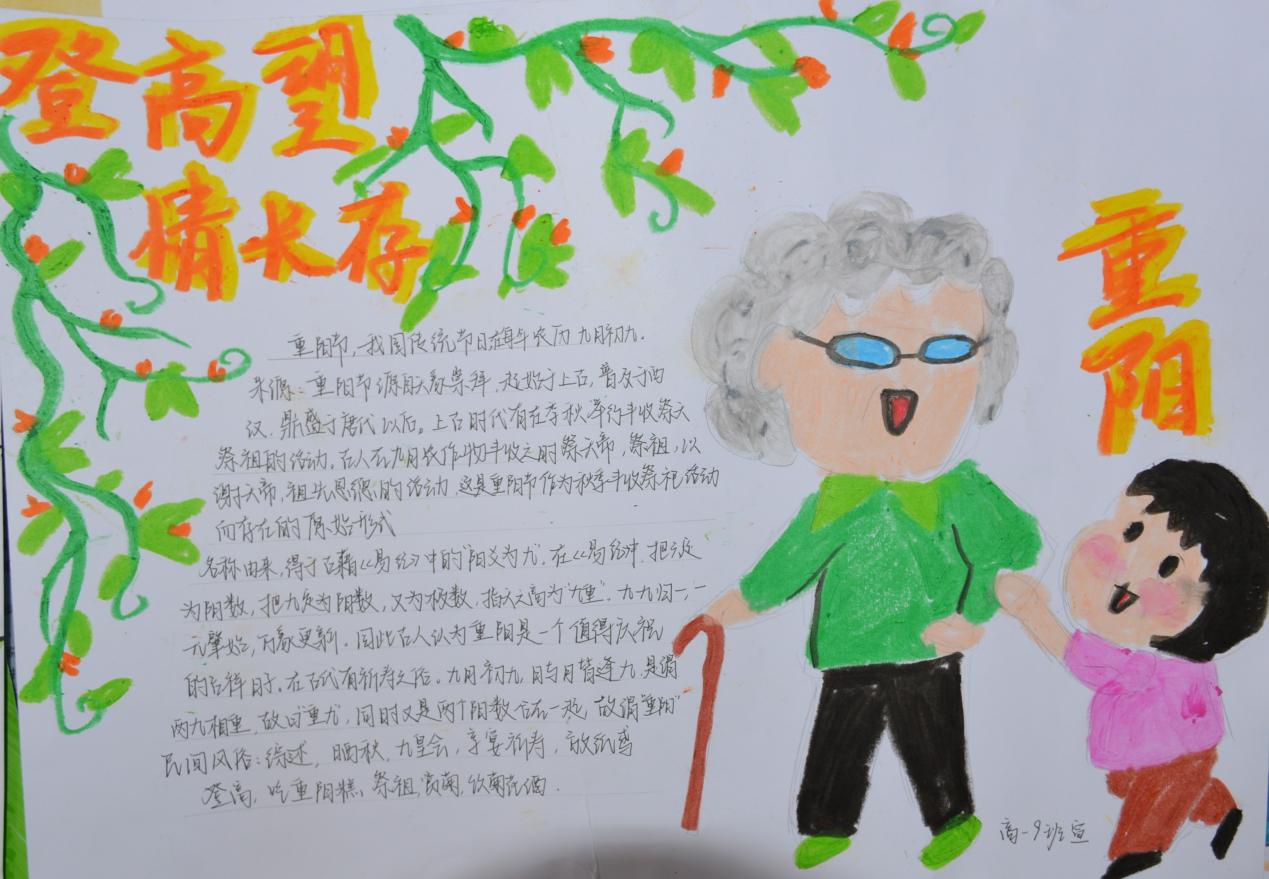 登高望
情长存
重阳
重阳节,我国传统节日在每年农历九月初九.
来源:重阳节源自天象崇拜,起始于上古,普及于西
汉.鼎盛于唐代以后。上古时代有在季秋举行丰收祭天
祭祖的活动.古人在九月农作物丰收之时祭天帝,祭祖,以
谢天帝,祖先恩德的活动.这是重阳节作为秋季丰收祭祀活动
而存在的原始形式
名称由来,得于古籍《易经》中的"阳爻为九".在《易经》中.把六定
为阴数,把九定为阳数,又为极数,指天之高为"九重".九九归一,一
元肇始,万象更新.因此古人认为重阳是一个值得庆祝
的吉祥日子.在古代有祈寿之俗.九月初九,日与月皆逢九,是谓
两九相重,故曰"重九",同时又是两个阳数合在一起,故谓"重阳"
民间风俗:综述,晒秋.九皇会,享宴祈寿,放纸鸢
登高,吃重阳糕.祭祖,赏菊,饮菊花酒.
高一9班宣